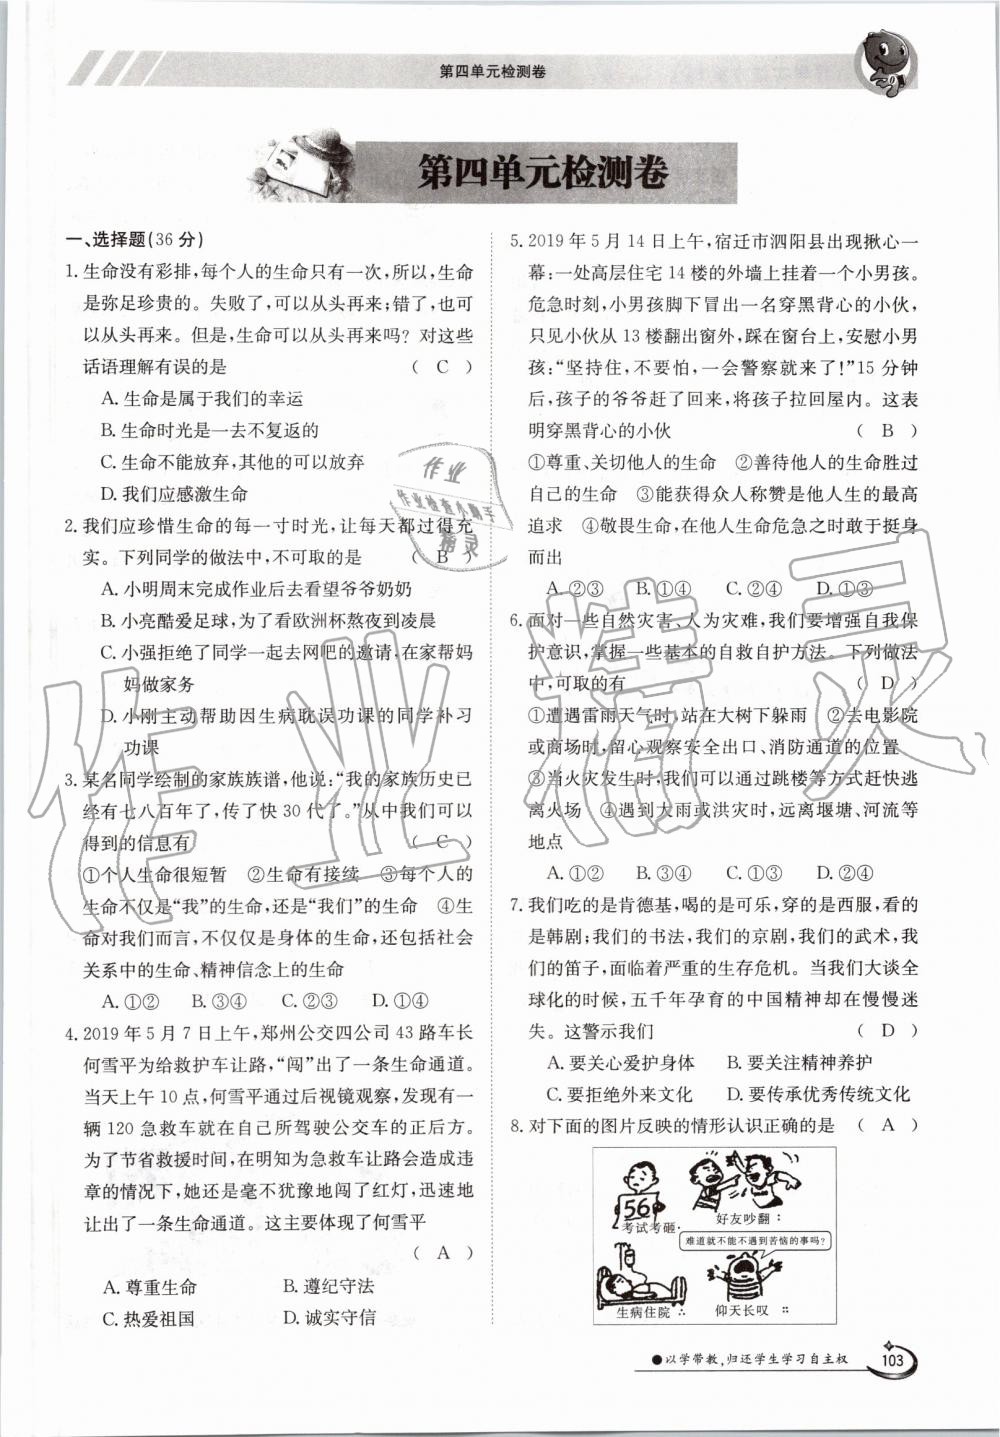 第四单元检测卷
第四单元检测卷
一、选择题(36分)
1. 生命没有彩排,每个人的生命只有一次,所以,生命
是弥足珍贵的。失败了,可以从头再来;错了,也可
以从头再来。但是,生命可以从头再来吗?对这些
话语理解有误的是 ( C )
A. 生命是属于我们的幸运
B. 生命时光是一去不复返的
C. 生命不能放弃,其他的可以放弃
D. 我们应感激生命
2. 我们应珍惜生命的每一寸时光,让每天都过得充
实。下列同学的做法中,不可取的是 ( B )
A. 小明周末完成作业后去看望爷爷奶奶
B. 小亮酷爱足球,为了看欧洲杯熬夜到凌晨
C. 小强拒绝了同学一起去网吧的邀请,在家帮妈
妈做家务
D. 小刚主动帮助因生病耽误功课的同学补习
功课
3. 某名同学绘制的家族族谱,他说:“我的家族历史已
经有七八百年了,传了快30代了。”从中我们可以
得到的信息有 ( C )
①个人生命很短暂 ②生命有接续 ③每个人的
生命不仅是“我”的生命,还是“我们”的生命 ④生
命对我们而言,不仅仅是身体的生命,还包括社会
关系中的生命、精神信念上的生命
A. ①② B. ③④ C. ②③ D. ①④
4. 2019年5月7日上午,郑州公交四公司43路车长
何雪平为给救护车让路,“闯”出了一条生命通道。
当天上午10点,何雪平通过后视镜观察,发现有一
辆120急救车就在自己所驾驶公交车的正后方。
为了节省救援时间,在明知为急救车让路会造成违
章的情况下,她还是毫不犹豫地闯了红灯,迅速地
让出了一条生命通道。这主要体现了何雪平
( A )
A. 尊重生命 B. 遵纪守法
C. 热爱祖国 D. 诚实守信
5. 2019年5月14日上午,宿迁市泗阳县出现揪心一
幕:一处高层住宅14楼的外墙上挂着一个小男孩。
危急时刻,小男孩脚下冒出一名穿黑背心的小伙,
只见小伙从13楼翻出窗外,踩在窗台上,安慰小男
孩:“坚持住,不要怕,一会警察就来了!”15分钟
后,孩子的爷爷赶了回来,将孩子拉回屋内。这表
明穿黑背心的小伙 ( B )
①尊重、关切他人的生命 ②善待他人的生命胜过
自己的生命 ③能获得众人称赞是他人生的最高
追求 ④敬畏生命,在他人生命危急之时敢于挺身
而出
A. ②③ B. ①④ C. ②④ D. ①③
6. 面对一些自然灾害、人为灾难,我们要增强自我保
护意识,掌握一些基本的自救自护方法。下列做法
中,可取的有 ( D )
①遭遇雷雨天气时,站在大树下躲雨 ②去电影院
或商场时,留心观察安全出口、消防通道的位置
③当火灾发生时,我们可以通过跳楼等方式赶快逃
离火场 ④遇到大雨或洪灾时,远离堰塘、河流等
地点
A. ①② B. ③④ C. ①③ D. ②④
7. 我们吃的是肯德基,喝的是可乐,穿的是西服,看的
是韩剧;我们的书法,我们的京剧,我们的武术,我
们的笛子,面临着严重的生存危机。当我们大谈全
球化的时候,五千年孕育的中国精神却在慢慢迷
失。这警示我们 ( D )
A. 要关心爱护身体 B. 要关注精神养护
C. 要拒绝外来文化 D. 要传承优秀传统文化
8. 对下面的图片反映的情形认识正确的是 ( A )
56
考试考砸
好友吵翻
难道就不能不遇到苦恼的事吗?
生病住院
仰天长叹
●以学带教,归还学生学习自主权
103
作业
作业检查小帮手
精灵
作业精灵